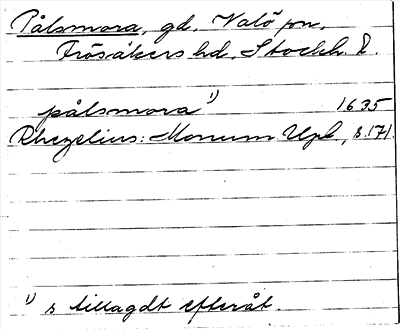 Pålsmora, gd, Valö sn,
Frösåkers hd, Stockh. l.
pålsmora ¹⁾ 1635
Rhezelius: Monum Upl, s. 171.
¹⁾ s tillagdt efteråt.